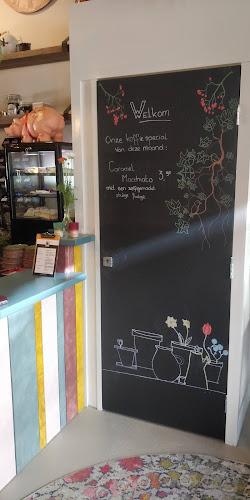 Welkom
Onze koffie special
van deze maand:
Caramel
Macchiato 3,50
met een zelfgemaakt
stukje fudge